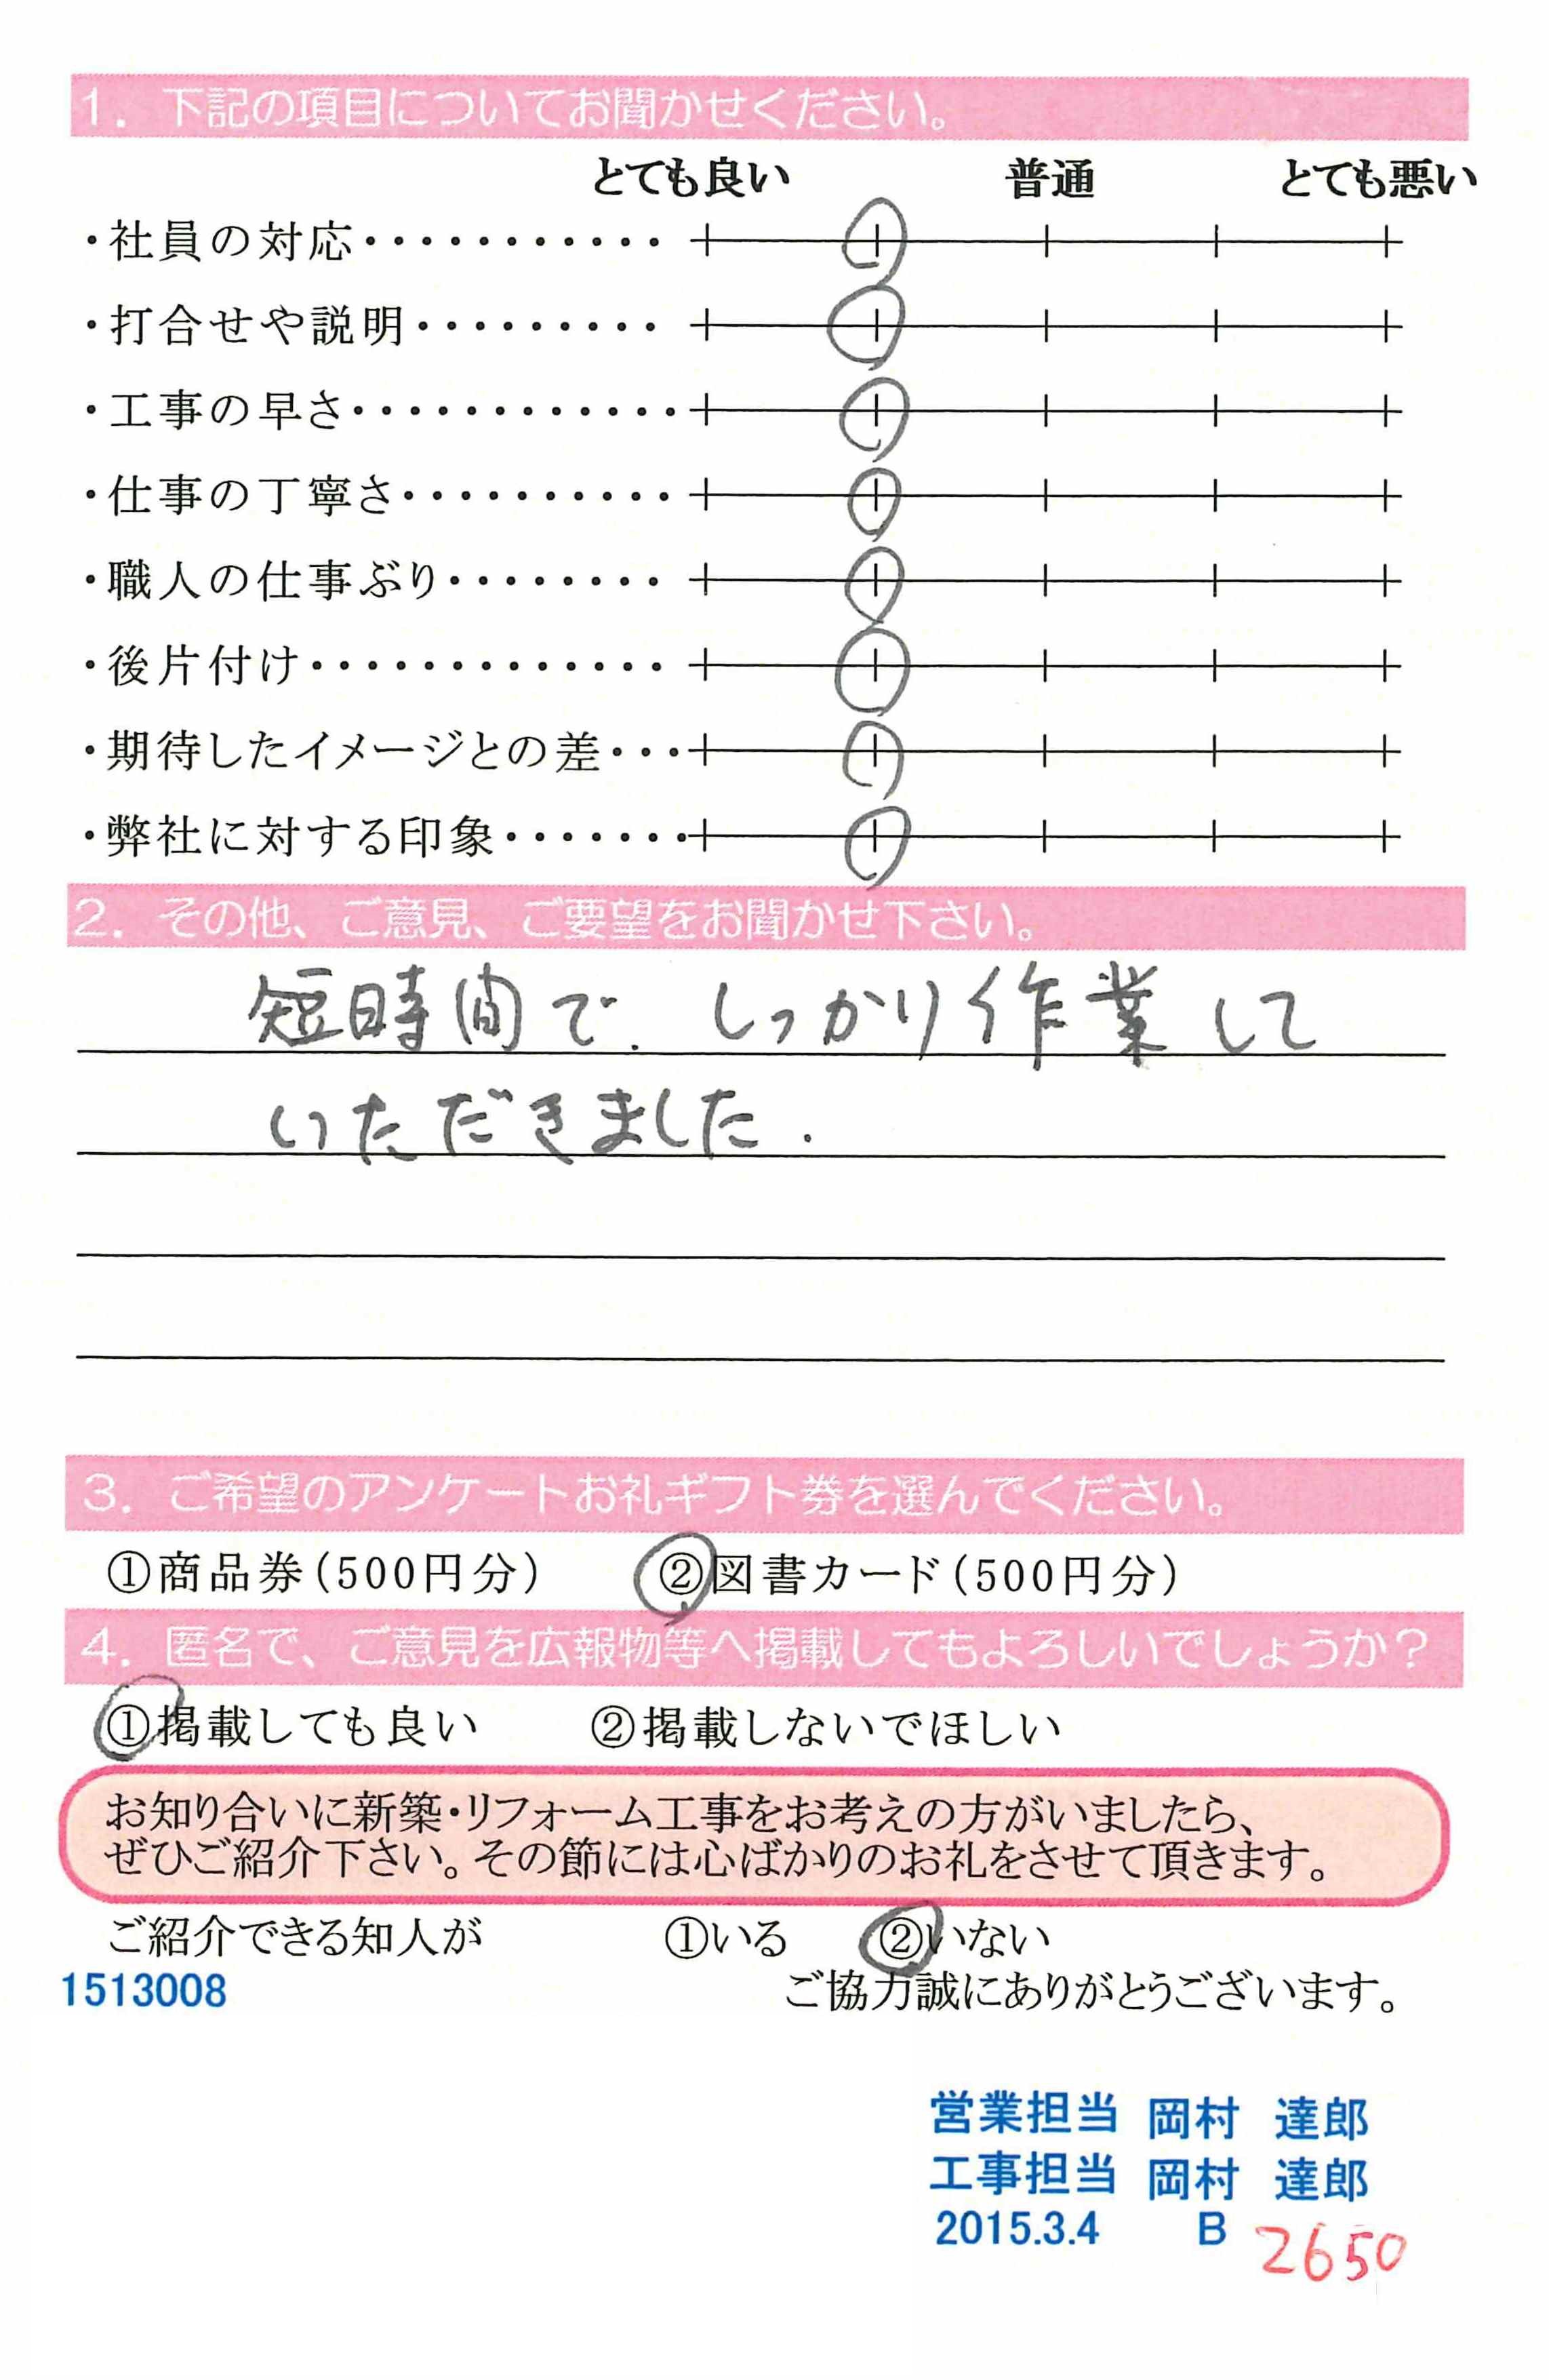 1. 下記の項目についてお聞かせください。
とても良い 普通 とても悪い
・社員の対応・・・・・・・・・・・
・打合せや説明・・・・・・・・・
・工事の早さ・・・・・・・・・・・・
・仕事の丁寧さ・・・・・・・・・・
・職人の仕事ぶり・・・・・・・・
・後片付け・・・・・・・・・・・・・
・期待したイメージとの差・・・
・弊社に対する印象・・・・・・・
2. その他、ご意見、ご要望をお聞かせ下さい。
短時間で. しっかり作業して
いただきました.
3. ご希望のアンケートお礼ギフト券を選んでください。
①商品券(500円分) ②図書カード(500円分)
4. 匿名で、ご意見を広報物等へ掲載してもよろしいでしょうか?
①掲載しても良い ②掲載しないでほしい
お知り合いに新築・リフォーム工事をお考えの方がいましたら、
ぜひご紹介下さい。その節には心ばかりのお礼をさせて頂きます。
ご紹介できる知人が ①いる ②いない
1513008 ご協力誠にありがとうございます。
営業担当 岡村 達郎
工事担当 岡村 達郎
2015.3.4 B 2650